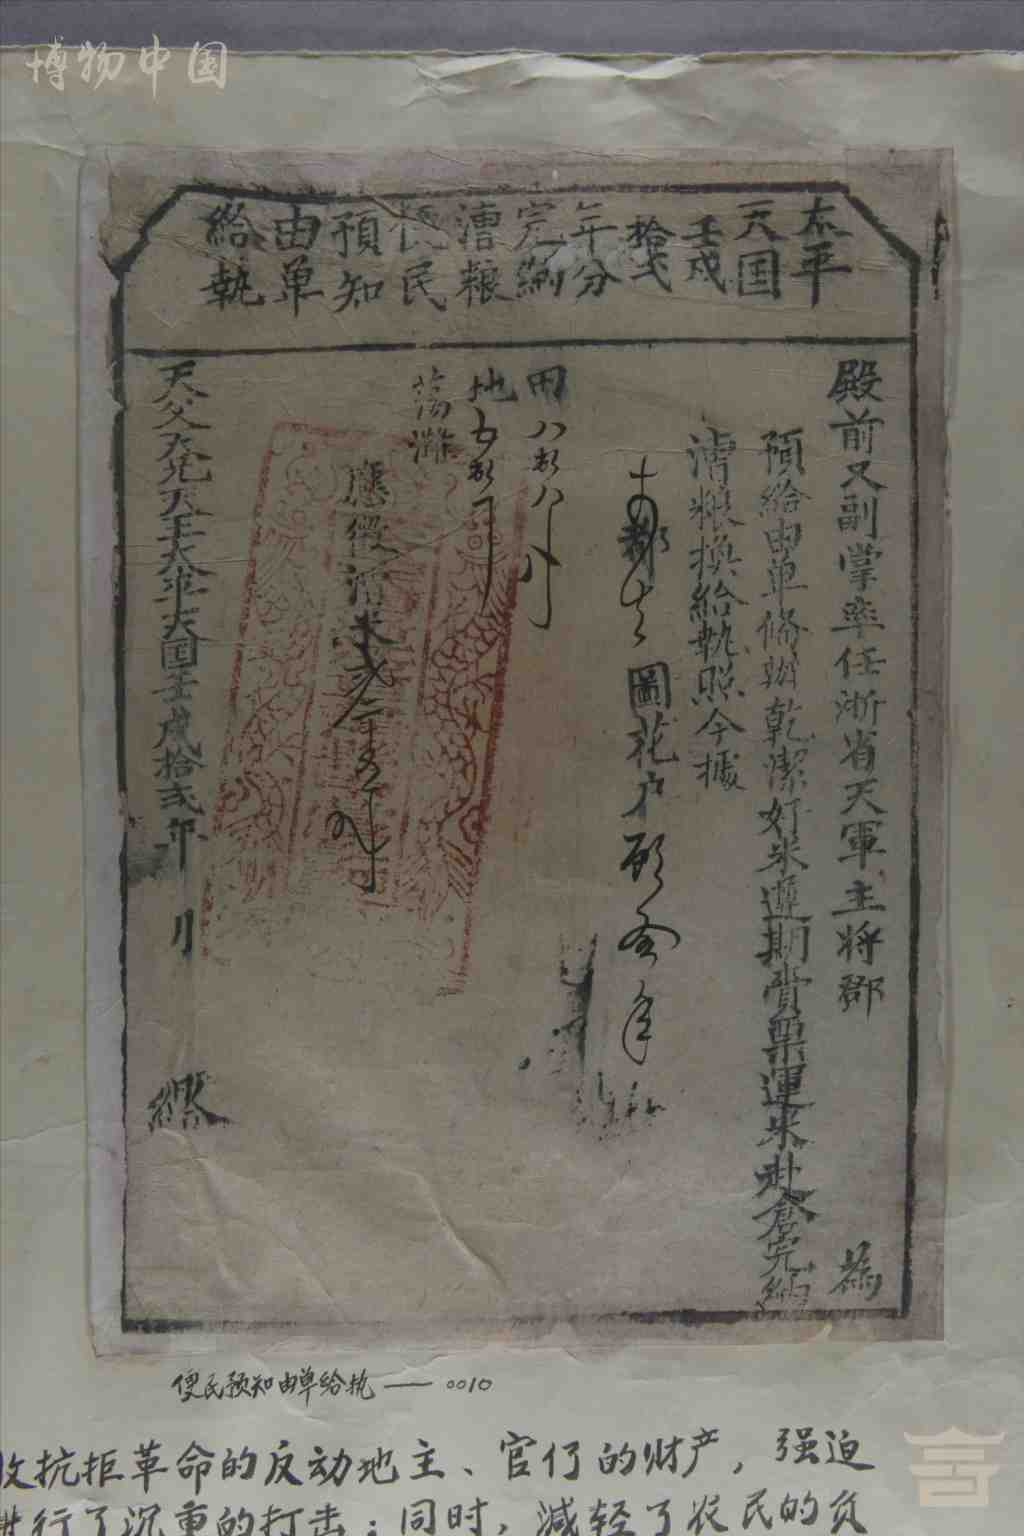 博物中国
太平
天国
壬戌
拾弍
年分
完納
漕粮
便民
預知
由单
給執
殿前又副掌率任浙省天軍主將鄧 為
預給由单俻辦乾潔好米遵期賫票運米赴倉完納
漕粮換給執照今據
圖花户
田
地
蕩灘
應徵漕米
天父天兄天王太平天国壬戌拾弍年 月 繳
便民预知由单给执——0010
收抗拒革命的反动地主、官僚的财产，强迫
进行了沉重的打击；同时，减轻了农民的负